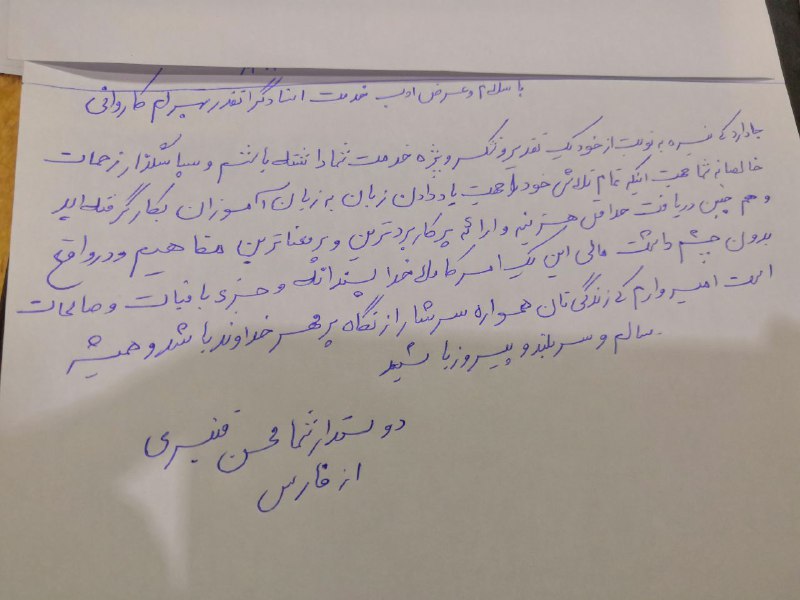 با سلام و عرض ادب خدمت استاد گرانقدر بهرام کاروانی
جا دارد که بنده به نوبت از خود یک تقدیر و تشکر ویژه خدمت شما داشته باشم و سپاسگذار زحمات
خالصانه شما جهت اینکه تمام تلاش خود را جهت یاد دادن زبان به زبان آموزان بکار گرفته اید
و هم چنین دریافت حداقل هزینه و ارائه پر کاربردترین و پر معناترین مفاهیم و در واقع
بدون چشم داشت مالی این یک امر کاملا خدا پسندانه و جزء باقیات و صالحات
است امیدوارم که زندگی تان همواره سرشار از نگاه پر مهر خداوند باشد و همیشه
سالم و سربلند و پیروز باشید
دوستدار شما محسن قنبری
از فارس